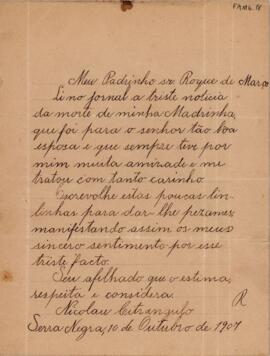 FAMG. 18
Meu Padrinho sr. Roque de Março
Li no jornal a triste noticia
da morte de minha Madrinha,
que foi para o senhor tão boa
esposa e que sempre teve por
mim muita amizade e me
tratou com tanto carinho.
Escrevolhe estas poucas lin-
linhas para dar-lhe pezames,
manifestando assim os meus
sincero sentimento por esse
triste facto.
Seu afilhado que o estima,
respeita e considera.
Nicolau
R
Serra Negra, 10 de Outubro de 1907